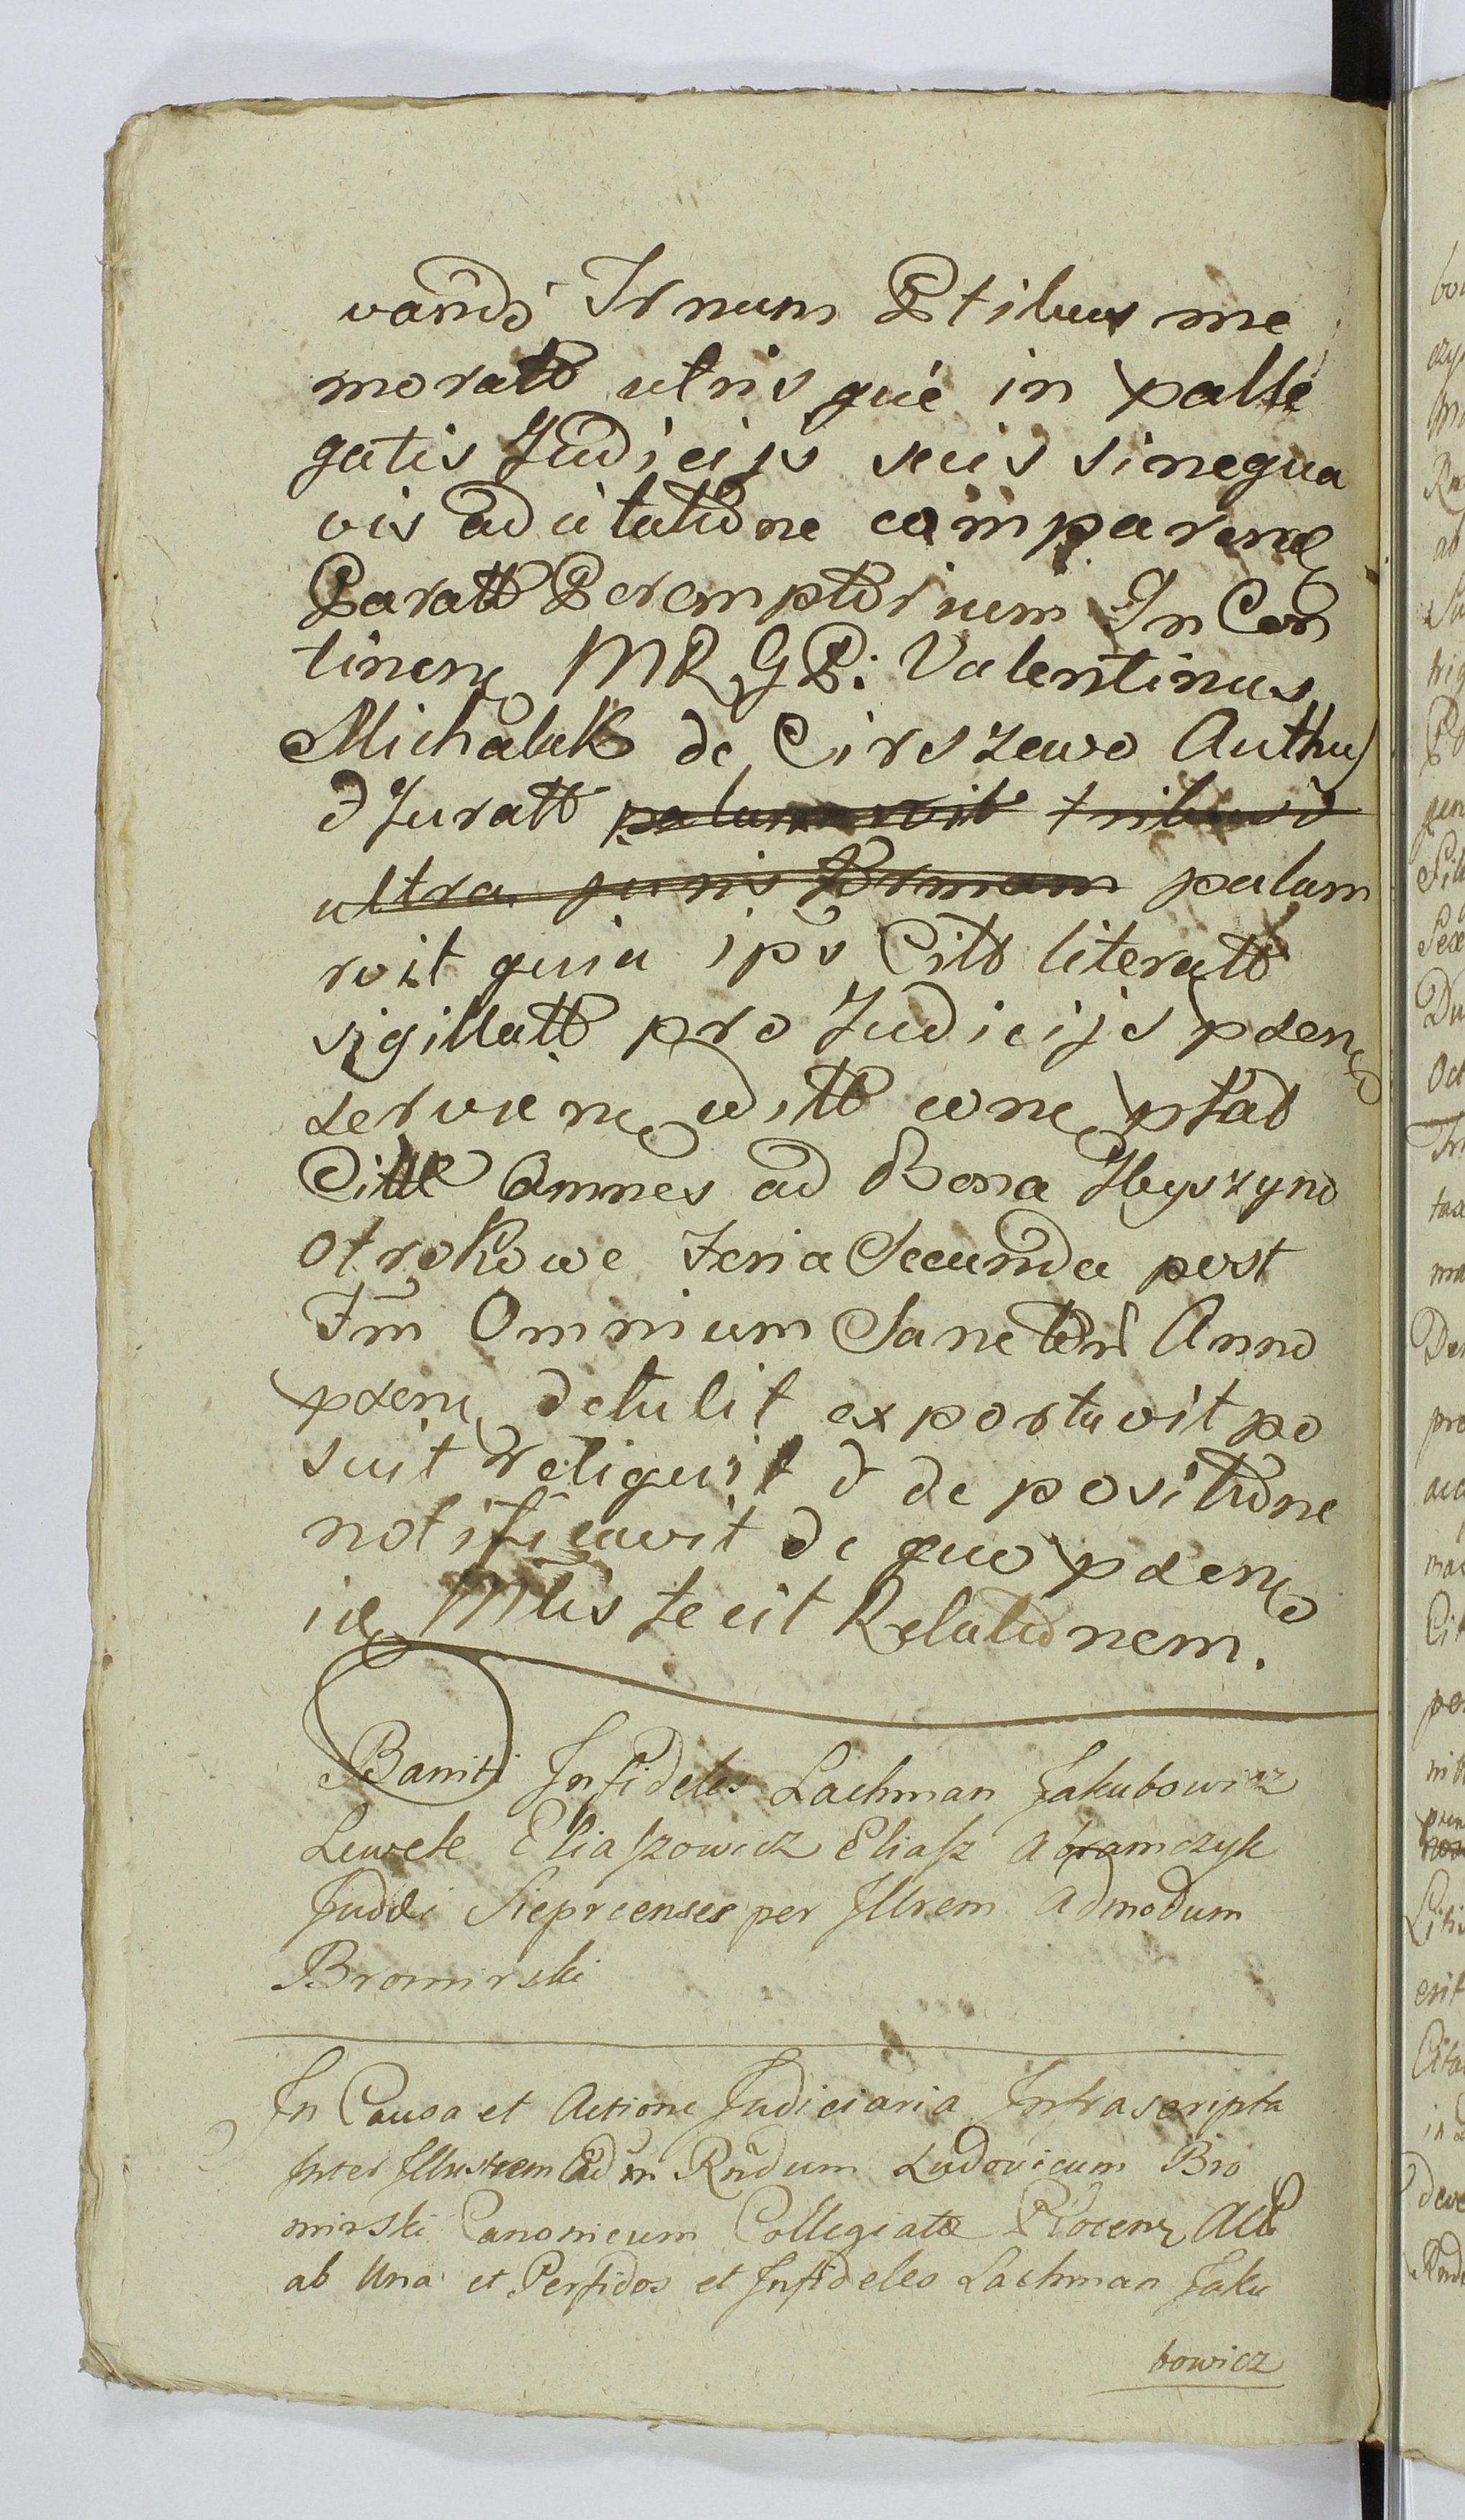 vandõ Trnum Ptibus me
moratt utris que in palle
gatis Judicijs suis sinequa
vis ad citatione comparen
Paratt Peremptorium In Con
tinen MRGP: Valentinus
Michalak de Cirszewo Auth
& Juratt palam roit tribus &
ultra juris formam palam
roit quia ips Citt literatt
sigillatt pro Judicijs pden
servien editt eone pfat
Citt Omnes ad Bona Zbyszyno
otrokowe Feria Secunda post
Fm Omnium Sanctor Anno
pden detulit exportavit po
suit reliquit & de positione
notificavit de quo pden
id Mlis fecit Relationem.
Baniti Infideles Lachman Jakubowicz
Lewek Eliaszowicz Eliasz Abramczyk
Judæi Sieprcenses per Illrem Admodum
Bromirski
In Causa et Actione Judiciaria Infrascripta
Inter Illustrem Adm Rndum Ludovicum Bro
mirski Canonicum Collegiatæ Plocen Act
ab Una et Perfidos et Infideles Lachman Jaku
bowicz